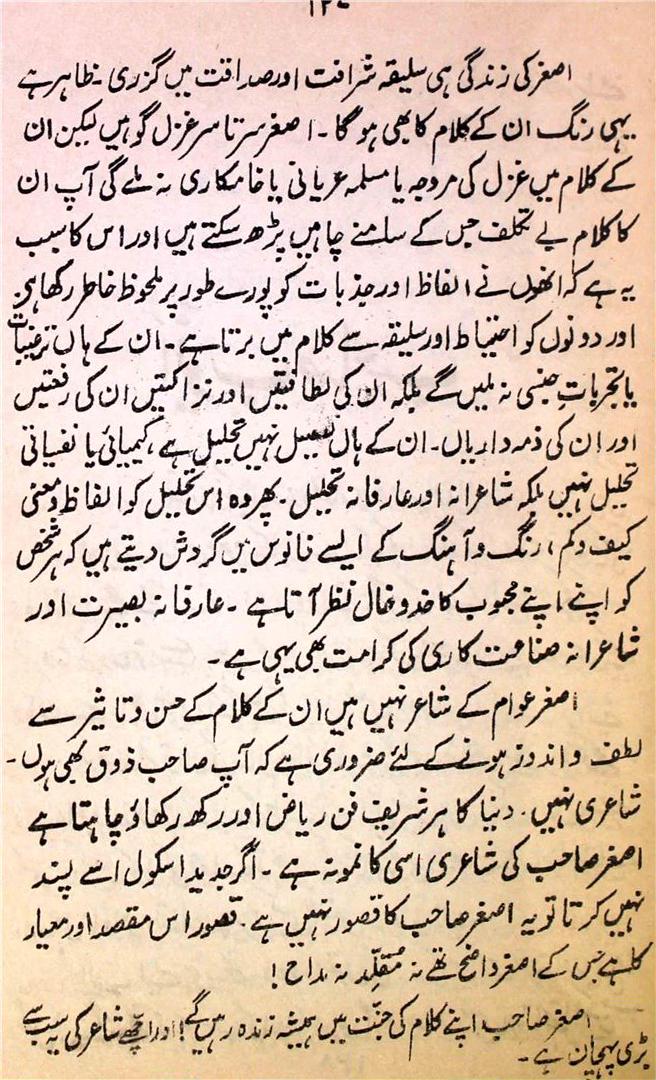 اصغر کی زندگی ہی سلیقہ شرافت اور صداقت میں گزری۔ ظاہر ہے
یہی رنگ ان کے کلام کا بھی ہوگا۔ اصغر سرتاسر غزل گو ہیں لیکن ان
کے کلام میں غزل کی مروجہ یا مسلمہ عریانی یا خامکاری نہ ملے گی آپ ان
کا کلام بے تکلف جس کے سامنے چاہیں پڑھ سکتے ہیں اور اس کا سبب
یہ ہے کہ انھوں نے الفاظ اور جذبات کو پورے طور پر ملحوظ خاطر رکھا ہے
اور دونوں کو احتیاط اور سلیقہ سے کلام میں برتا ہے۔ ان کے ہاں ترغیبات
یا تجربات جنسی نہ ملیں گے بلکہ ان کی لطافتیں اور نزاکتیں ان کی رفعتیں
اور ان کی ذمہ داریاں۔ ان کے ہاں نہیں تحلیل ہے، کیمیائی یا نفسیاتی
تحلیل نہیں بلکہ شاعرانہ اور عارفانہ تحلیل۔ پھر وہ اس تحلیل کو الفاظ و معنی
کیف و کم، رنگ و آہنگ کے ایسے فانوس میں گردش دیتے ہیں کہ ہر شخص
کو اپنے اپنے محبوب کا خدوخال نظر آتا ہے۔ عارفانہ بصیرت اور
شاعرانہ صناعت کاری کی کرامت بھی یہی ہے۔
اصغر عوام کے شاعر نہیں ہیں ان کے کلام کے حسن و تاثیر سے
لطف و اندوز ہونے کے لئے ضروری ہے کہ آپ صاحب ذوق بھی ہوں۔
شاعری نہیں۔ دنیا کا ہر شریف فن ریاض اور رکھ رکھاؤ چاہتا ہے
اصغر صاحب کی شاعری اسی کا نمونہ ہے۔ اگر جدید اسکول اسے پسند
نہیں کرتا تو یہ اصغر صاحب کا قصور نہیں ہے۔ قصور اس مقصد اور معیار
کا ہے جس کے اصغر واضح تھے نہ مقلِّد نہ مداح!
اصغر صاحب اپنے کلام کی جنّت میں ہمیشہ زندہ رہیں گے! اور اچھے شاعر کی یہ سب سے
بڑی پہچان ہے۔